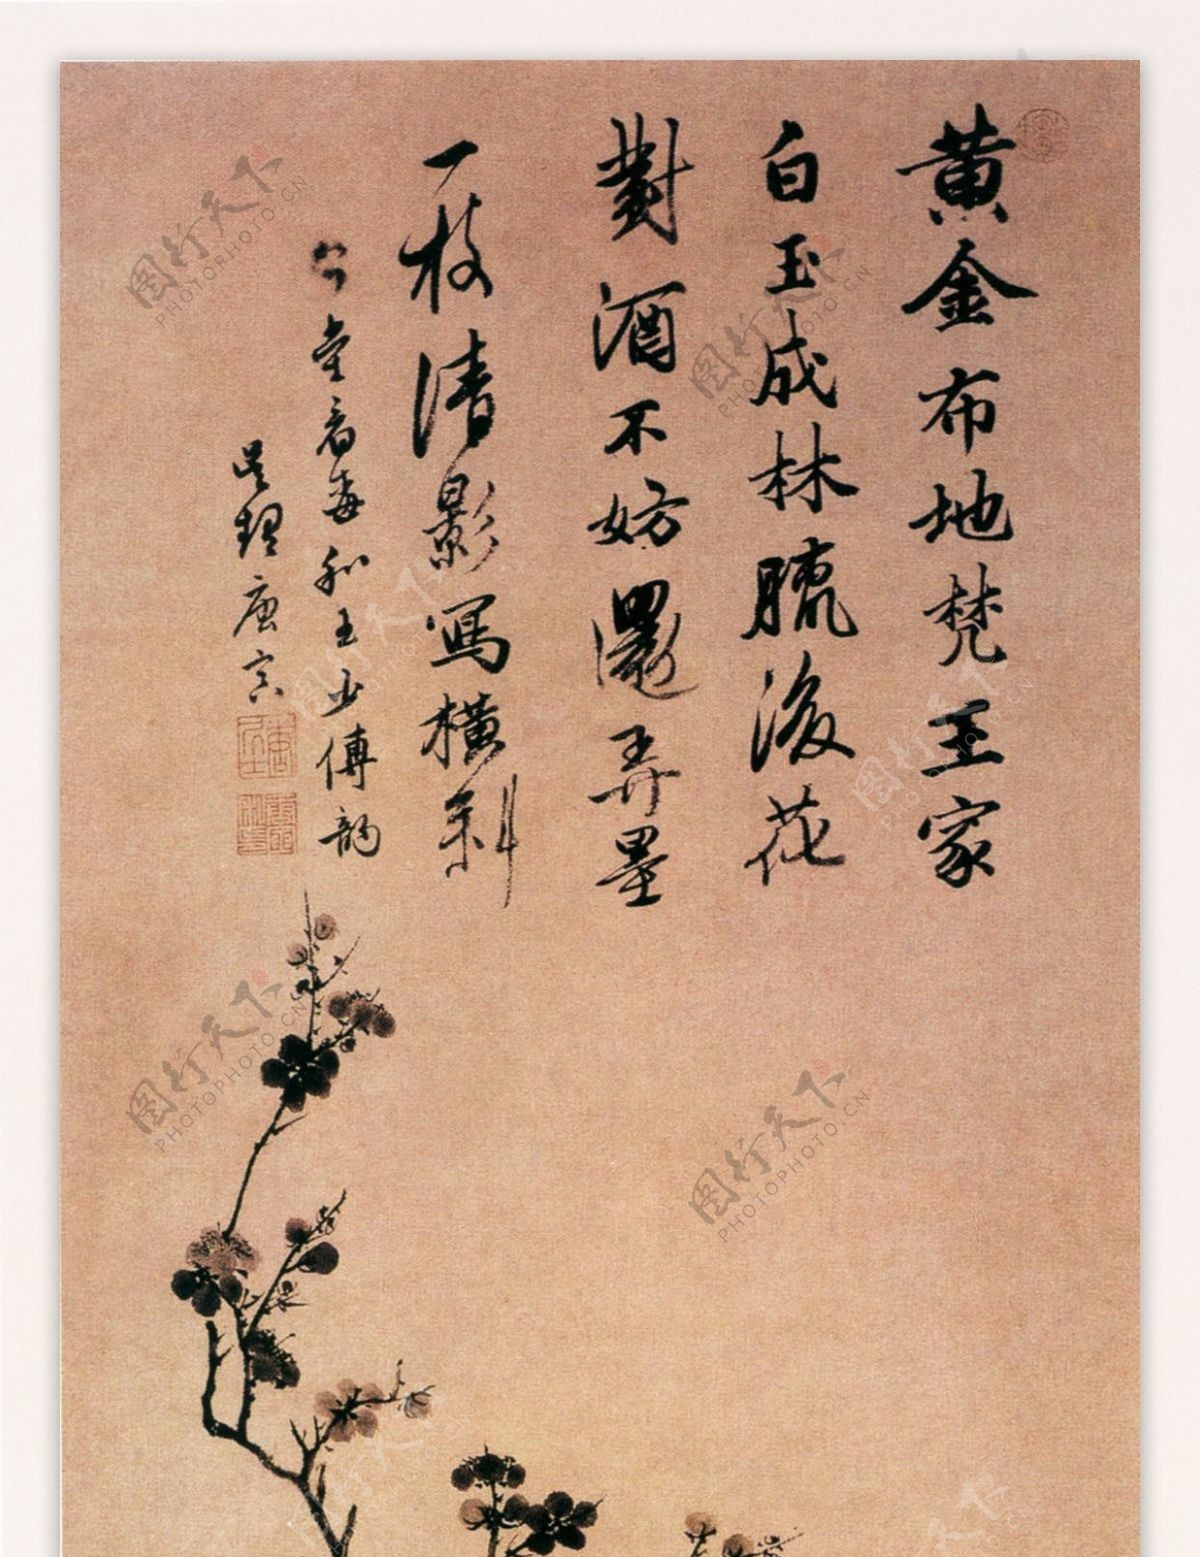 黄金布地梵王家
白玉成林臘後花
對酒不妨還弄墨
一枝清影寫橫斜
堂看梅和王少傅韵
吳趨唐寅
图行天下
PHOTOPHOTO.CN